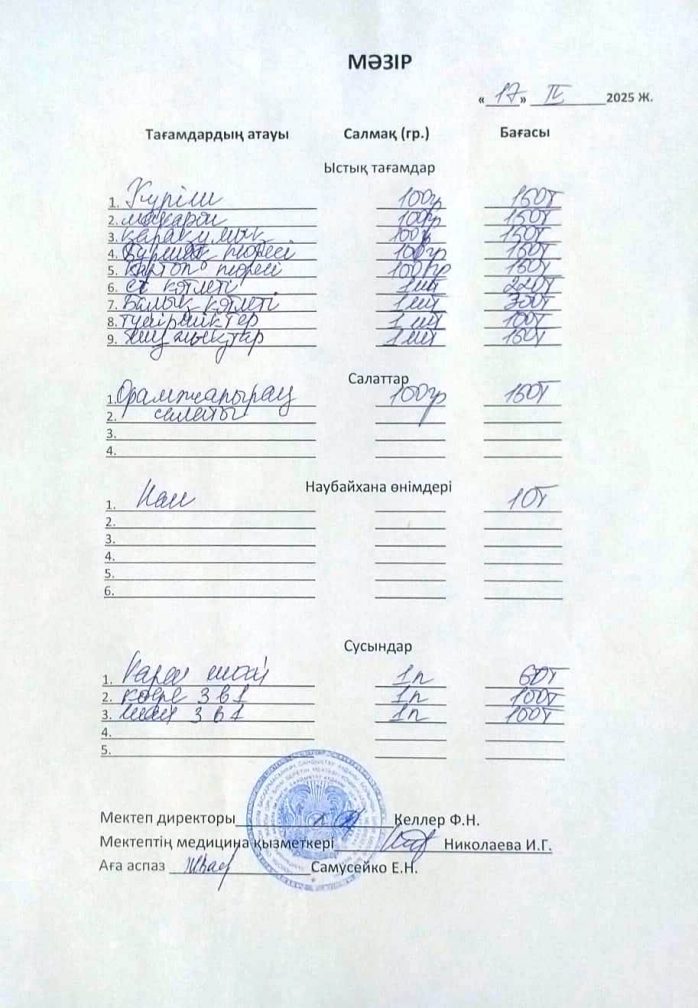 МӘЗІР
«17» IV 2025 Ж.
Тағамдардың атауы Салмақ (гр.) Бағасы
Ыстық тағамдар
1. Күріш 100гр 150т
2. макарон 100гр 150т
3. қарақұмық 100гр 150т
4. Бұршақ пюресі 100гр 150т
5. Картоп пюресі 100гр 150т
6. ет котлеті 1шт 220т
7. Балық котлеті 1шт 300т
8. түйіршіктер 1шт 100т
9. 1шт 150т
Салаттар
1. Орамжапырақ 100гр 150т
2. салаты
3.
4.
Наубайхана өнімдері
1. Нан 10т
2.
3.
4.
5.
6.
Сусындар
1. Қара шай 1п 60т
2. кофе 3 в 1 1п 100т
3. шай 3 в 1 1п 100т
4.
5.
Мектеп директоры Келлер Ф.Н.
Мектептің медицина қызметкері Николаева И.Г.
Аға аспаз Самусейко Е.Н.